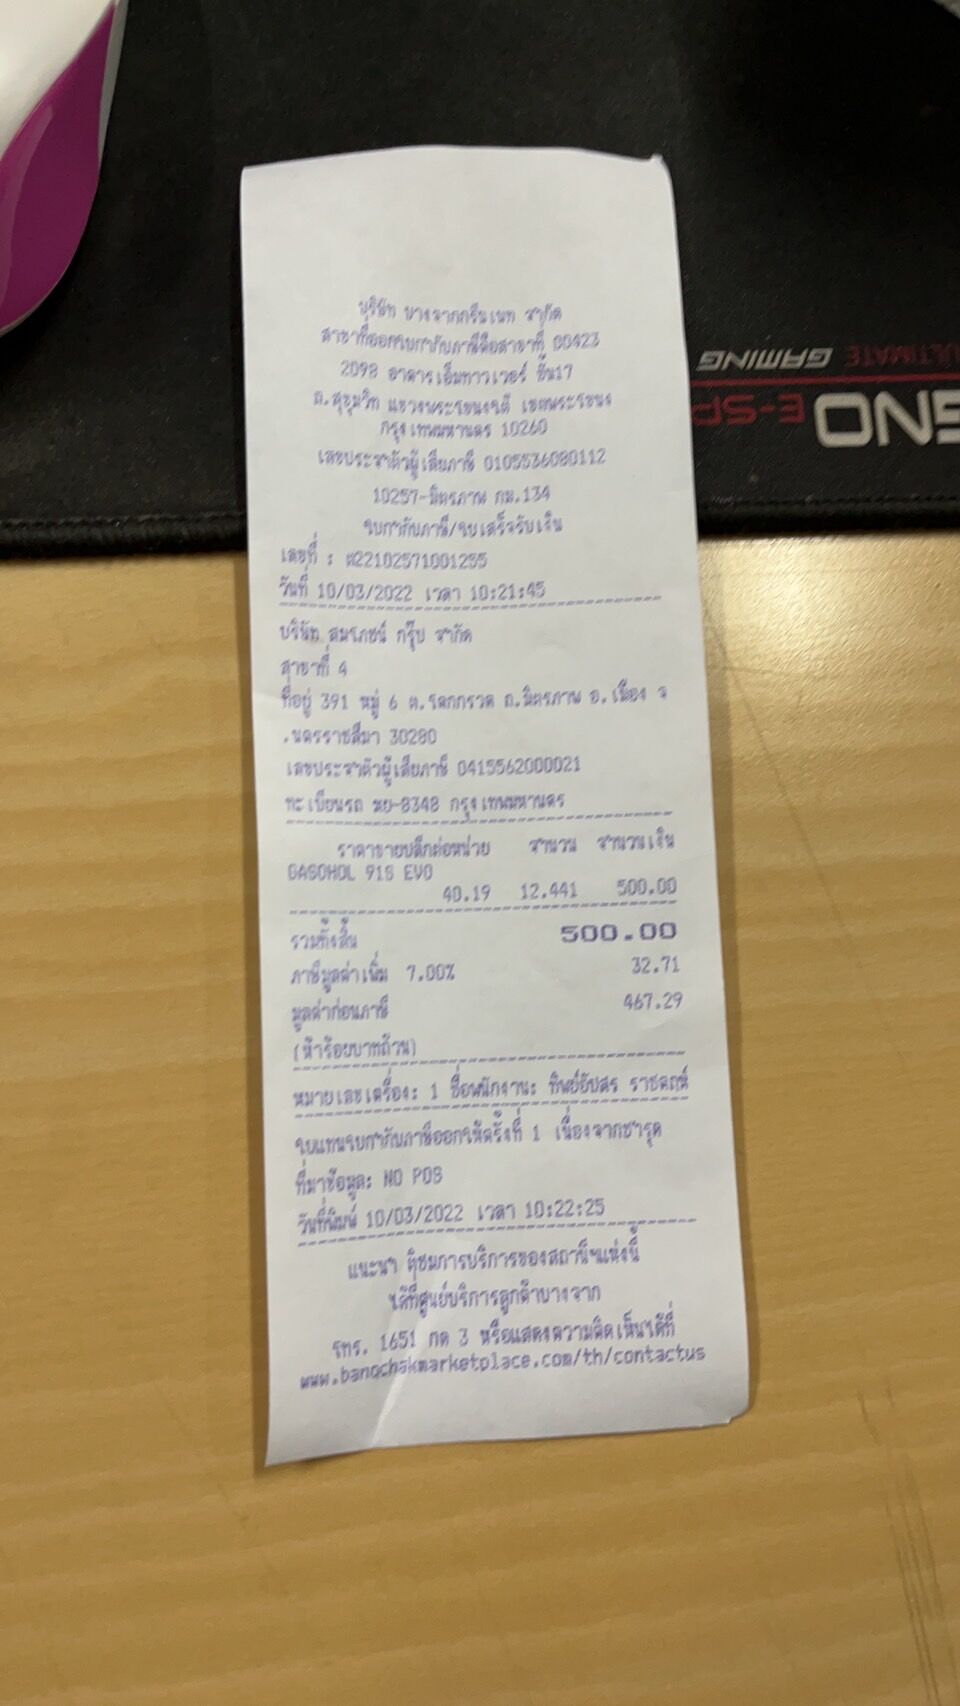 บริษัท บางจากกรีนเนท จำกัด
สาขาที่ออกใบกำกับภาษีคือสาขาที่ 00423
2098 อาคารเอ็มทาวเวอร์ ชั้น17
ถ.สุขุมวิท แขวงพระโขนงใต้ เขตพระโขนง
กรุงเทพมหานคร 10260
เลขประจำตัวผู้เสียภาษี 0105536080112
10257-มิตรภาพ กม.134
ใบกำกับภาษี/ใบเสร็จรับเงิน
เลขที่ : #22102571001255
วันที่ 10/03/2022 เวลา 10:21:45
บริษัท สมโภชน์ กรุ๊ป จำกัด
สาขาที่ 4
ที่อยู่ 391 หมู่ 6 ต.โคกกรวด ถ.มิตรภาพ อ.เมือง จ
.นครราชสีมา 30280
เลขประจำตัวผู้เสียภาษี 0415562000021
ทะเบียนรถ ฆย-8348 กรุงเทพมหานคร
ราคาขายปลีกต่อหน่วย จำนวน จำนวนเงิน
GASOHOL 91S EVO
40.19 12.441 500.00
รวมทั้งสิ้น 500.00
ภาษีมูลค่าเพิ่ม 7.00% 32.71
มูลค่าก่อนภาษี 467.29
(ห้าร้อยบาทถ้วน)
หมายเลขเครื่อง: 1 ชื่อพนักงาน: ทิพย์อัปสร
ใบแทนใบกำกับภาษีออกให้ครั้งที่ 1 เนื่องจากชำรุด
ที่มาข้อมูล: NO POS
วันที่พิมพ์ 10/03/2022 เวลา 10:22:25
แนะนำ ติชมการบริการของสถานีฯแห่งนี้
ได้ที่ศูนย์บริการลูกค้าบางจาก
โทร. 1651 กด 3 หรือแสดงความคิดเห็นได้ที่
www.bangchakmarketplace.com/th/contactus
ULTIMATE GAMING
GNO E-SP